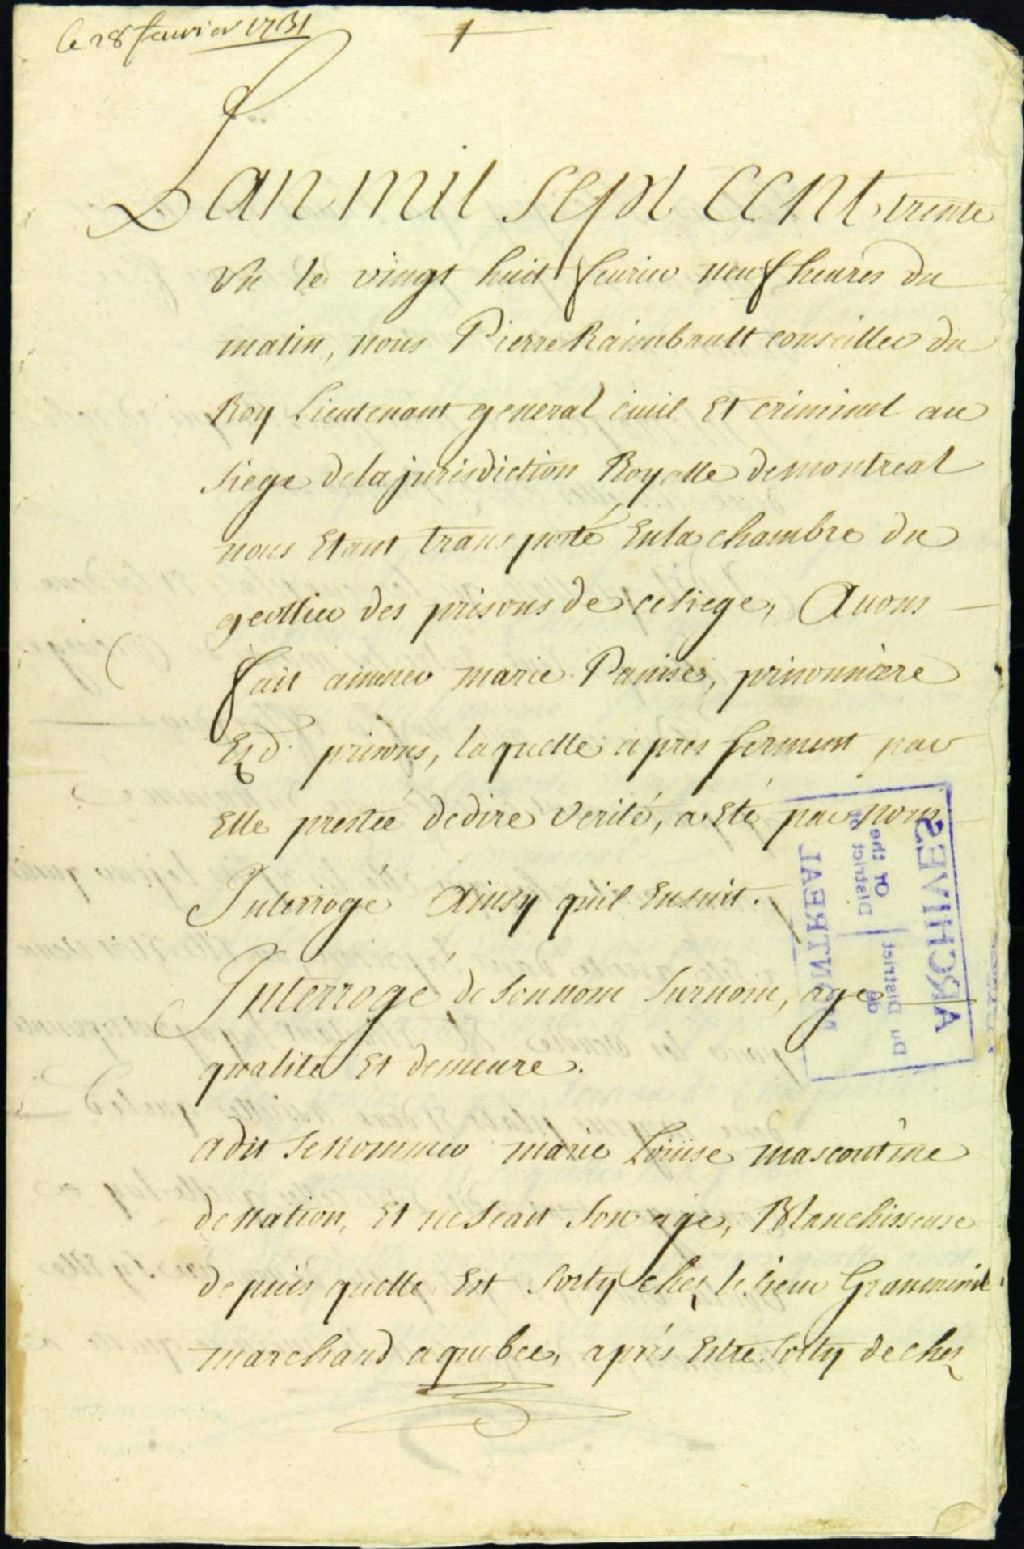 le 28 feurier 1731
Lan mil sept cent trente
un le vingt huit feurier neuf heures du
matin, nous Pierre Raimbault conseiller du
Roy Lieutenant general ciuil Et criminel au
siege de la jurisdiction Royalle de montreal
nous Etant transporté En la chambre du
geollier des prisons de ce siege, Auons
fait amener marie Panise, prisonniere
Esd. prisons, laquelle apres serment par
Elle prestée de dire verité, a Eté par nous
Interrogé Ainsy quil Ensuit.
Interrogé de son nom surnom, age
qualité Et demeure.
a dit se nommer marie Loüise mascoutine
de nation, Et ne scait son age, Blanchisseuse
depuis quelle Est sorty chez le sieur
marchand a quebec, aprés Estre sorty de chez
ARCHIVES
Du District | District
de | Of the
MONTREAL